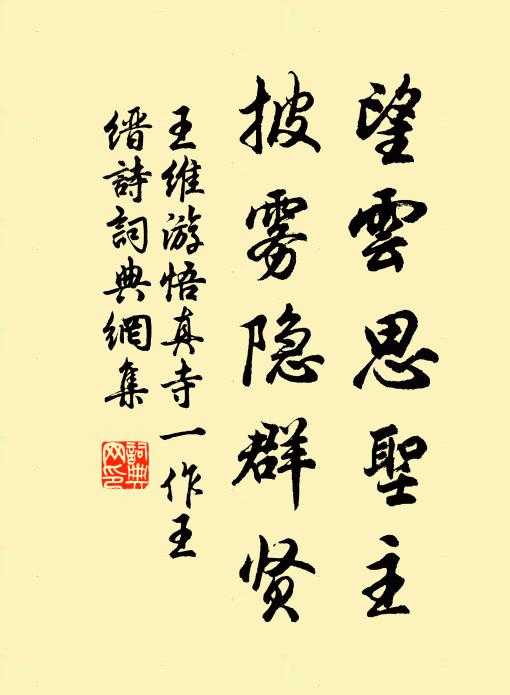 望雲思聖主
披雾隐群贤
王維游悟真寺一作王
缙詩詞典網集
詞典网印